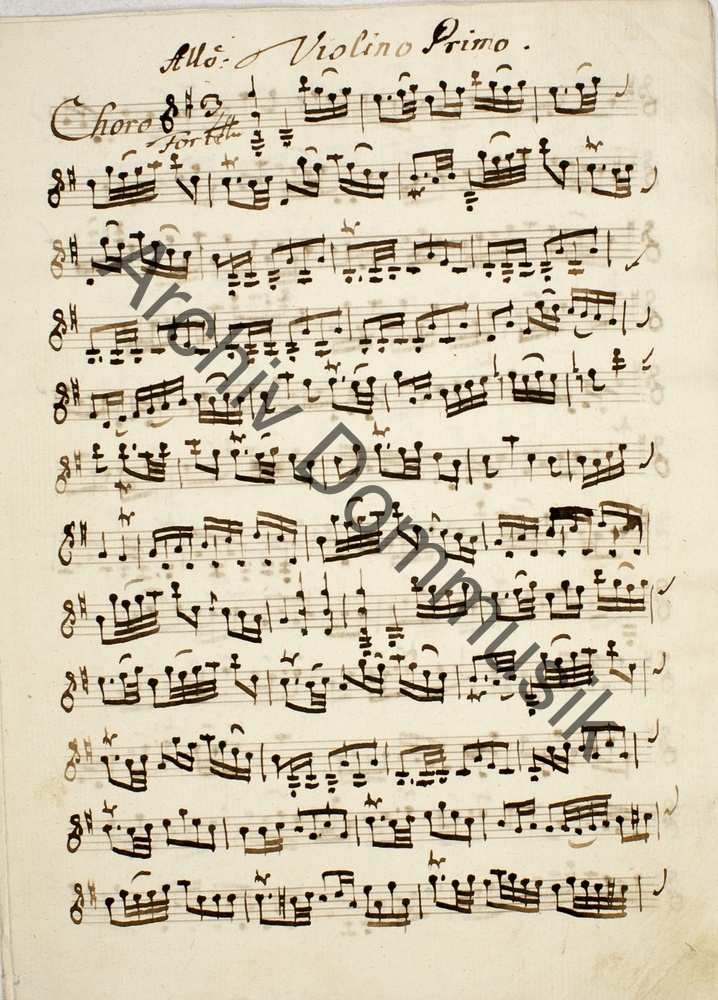 Allº: Violino Primo.
Choro
Forte
Archiv Dommusik